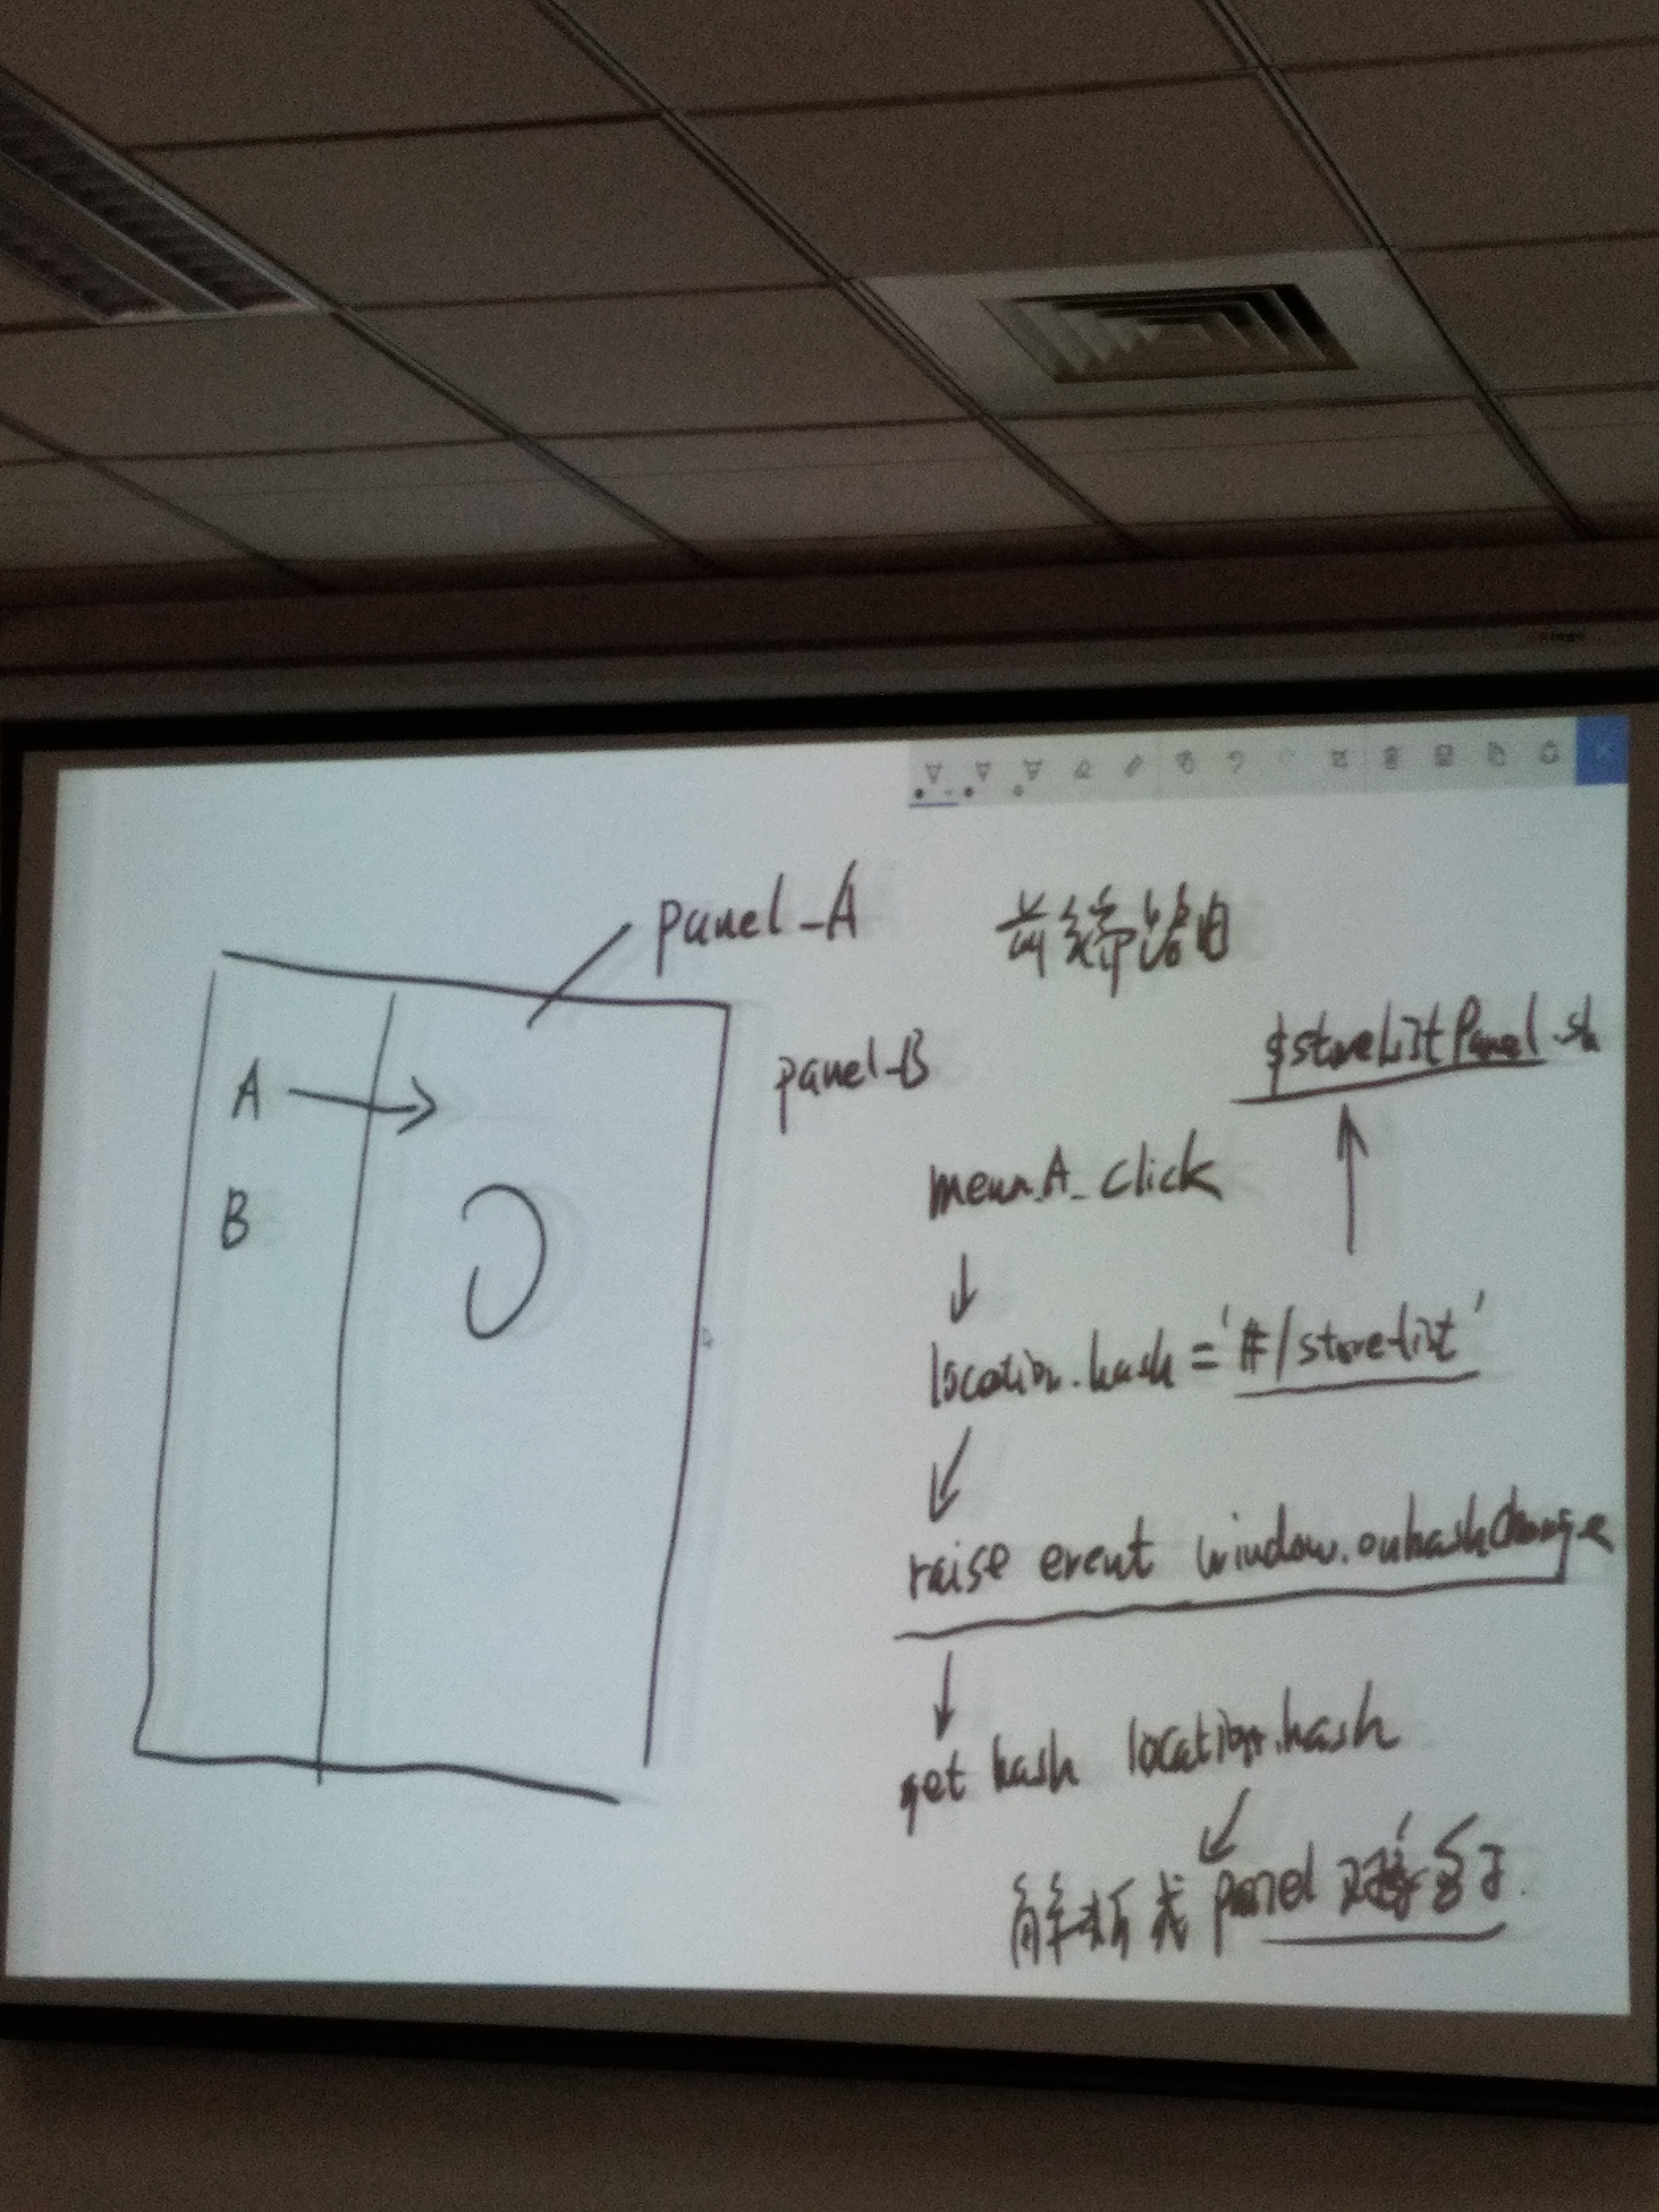 panel_A
前缘路由
A
B
panel-B
$storeListPanel.sh
menu_A_click
location.hash = '#/store-list'
raise event window.onhashchange
get hash location.hash
解析成 panel 对接名字